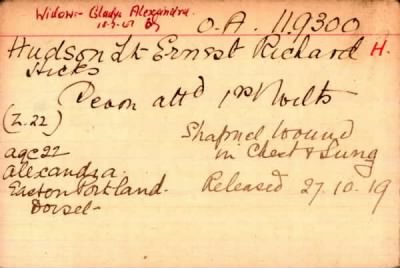 Widow - Gladys Alexandra.
O.A. 119300
Hudson Lt Ernest Richard H.
Hicks
Devon attd 1st Wilts
(Z.22)
Shapnel Wound
in Chest & Lung
age 22
Alexandra.
Easton Portland.
Dorset
Released 27.10.19